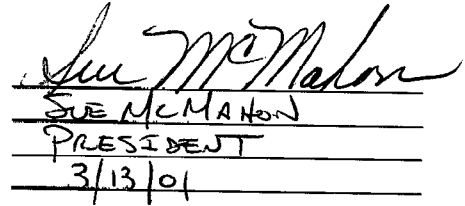 Sue McMahon
SUE MCMAHON
PRESIDENT
3/13/01